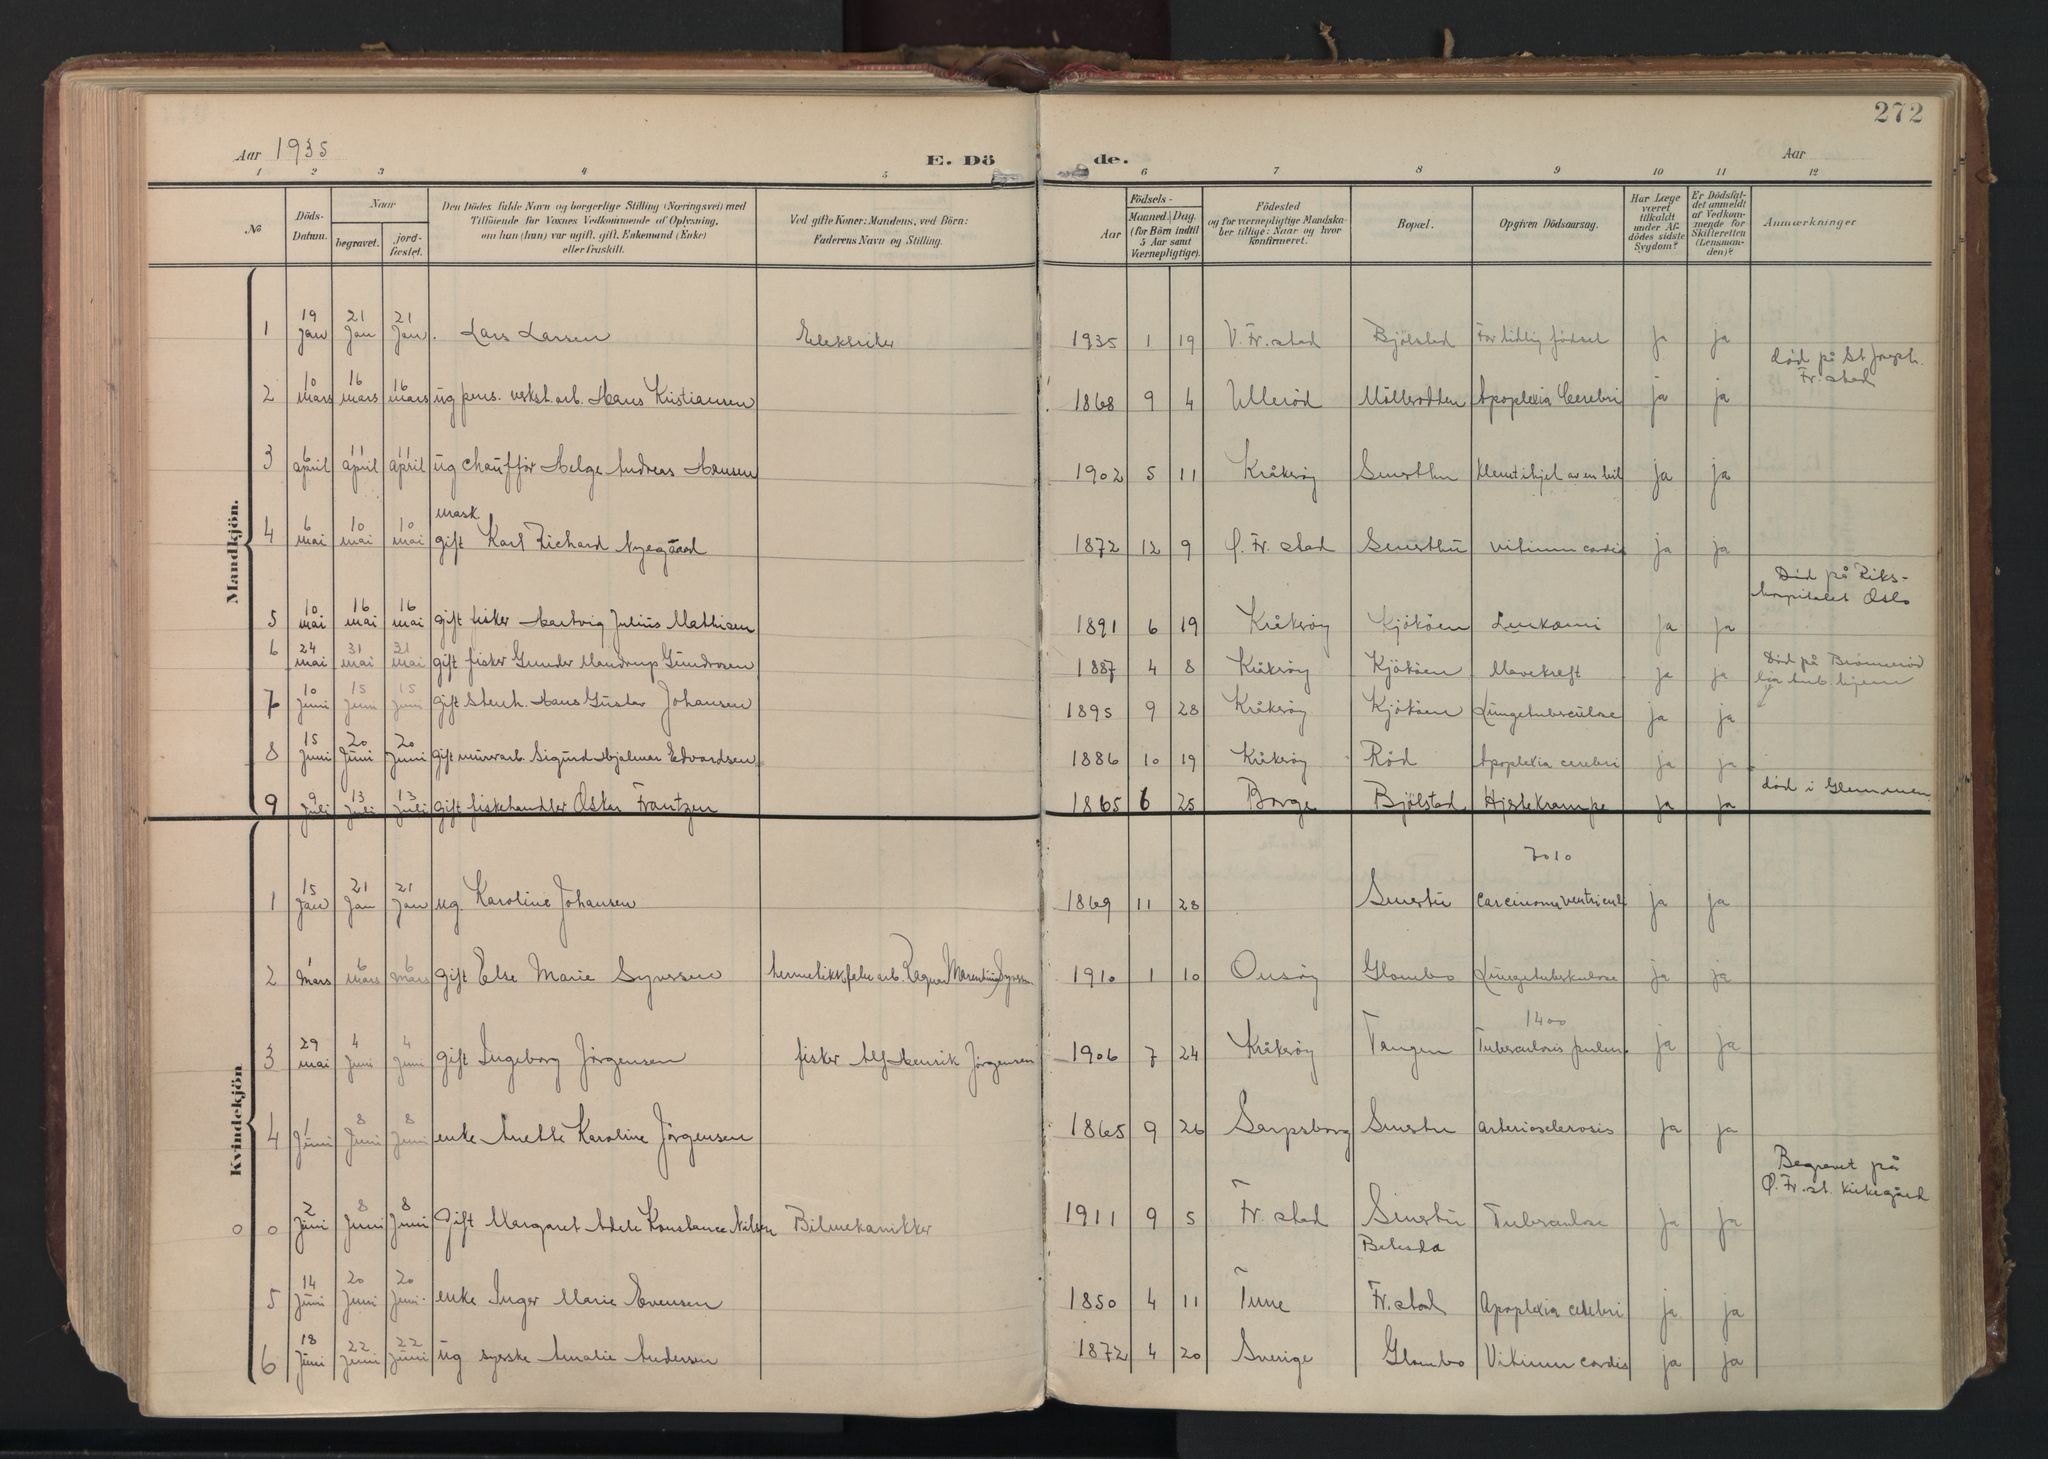 272
Aar 1935 E. Dö de. Aar
1 2 3 4 5 6 7 8 9 10 11 12
No
Döds-Datum.
Naar
begravet.
jord-fæstet.
Den Dödes fulde Navn og borgerlige Stilling (Næringsvei) med
Tilföiende for Voxnes Vedkommende af Oplysning,
om han (hun) var ugift, gift, Enkemand (Enke)
eller fraskilt.
Ved gifte Koner: Mandens, ved Börn:
Faderens Navn og Stilling.
Födsels-
Aar
Maaned. Dag.
(for Börn indtil
5 Aar samt
Værnepligtige).
Födested
og for værnepligtige Mandska-
ber tillige: Naar og hvor
konfirmeret.
Bopæl.
Opgiven Dödsaarsag.
Har Læge
været
tilkaldt
under Af-
dödes sidste
Sygdom?
Er Dödsfal-
det anmeldt
af Vedkom-
mende for
Skifteretten
(Lensman-
den)?
Anmærkninger
Mandkjön.
1 19 Jan 21 Jan 21 Jan. Lars Larsen Elektriker 1935 1 19 V. Fr. stad Bjölstad For tidlig födsel ja ja
död på St Joseph.
Fr. stad
2 10 mars 16 mars 16 mars ug pens. verkst. arb. Hans Kristiansen 1868 9 4 Ulleröd Mölleodden Apoplexia Cerebri ja ja
3 6 april 11 april 11 april ug chaufför Helge Andreas Hansen 1902 5 11 Kråkeröy Klemt ihjel av en bil ja ja
4 6 mai 10 mai 10 mai mask
gift Karl Richard Nyegaard 1872 12 9 Ø. Fr. stad vitium cordis ja ja
Död på Riks-
hospitalet Oslo
5 10 mai 16 mai 16 mai gift fisker Hartvig Julius Mathisen 1891 6 19 Kråkeröy Kjököen Leukæmi ja ja
6 24 mai 31 mai 31 mai gift fisker Gunder Mandrup Gundrosen 1887 4 8 Kråkeröy Kjököen Mavekreft ja ja
Död på
hjem
7 10 Juni 15 Juni 15 Juni gift stenh. Hans Gustav Johansen 1895 9 28 Kråkeröy Kjököen Lungetuberculose ja ja
8 15 Juni 20 Juni 20 Juni gift murerarb. Sigurd Hjalmar Edvardsen 1886 10 19 Kråkeröy Röd Apoplexia cerebri ja ja
9 9 Juli 13 Juli 13 Juli gift fiskehandler Oskar Frantzen 1865 6 25 Borge Bjölstad Hjertekrampe ja ja död i Glemmen
Kvindekjön
7010
1 15 Jan 21 Jan 21 Jan ug. Karoline Johansen 1869 11 28 carcinoma ventriculi ja ja
2 1 mars 6 mars 6 mars gift Else Marie Syversen hermetikkfabr arb. Ragnar Marentius Syversen 1910 1 10 Onsöy Glombo Lungetuberkulose ja ja
1400
3 29 mai 4 Juni 4 Juni gift Ingeborg Jörgensen fisker Alf Henrik Jörgensen 1906 7 24 Kråkeröy Tangen Tuberculosis pulm. ja ja
4 1 Juni 8 Juni 8 Juni enke Anette Karoline Jörgensen 1865 9 26 Sarpsborg arteriosclerosis ja ja
Begravet på
Ø. Fr. st. kirkegård
0 0 2 Juni 8 Juni 8 Juni Gift Margaret Adele Konstance Nilsen Bilmekanikker 1911 9 5 Fr. stad Tuberculose ja ja
Betesda
5 14 Juni 20 Juni 20 Juni. enke Inger Marie Evensen 1850 4 11 Tune Fr. stad Apoplexia cerebri ja ja
6 18 Juni 22 Juni 22 Juni ug syerske Amalie Andersen 1872 4 20 Sverige Glombo Vitium cordis ja ja